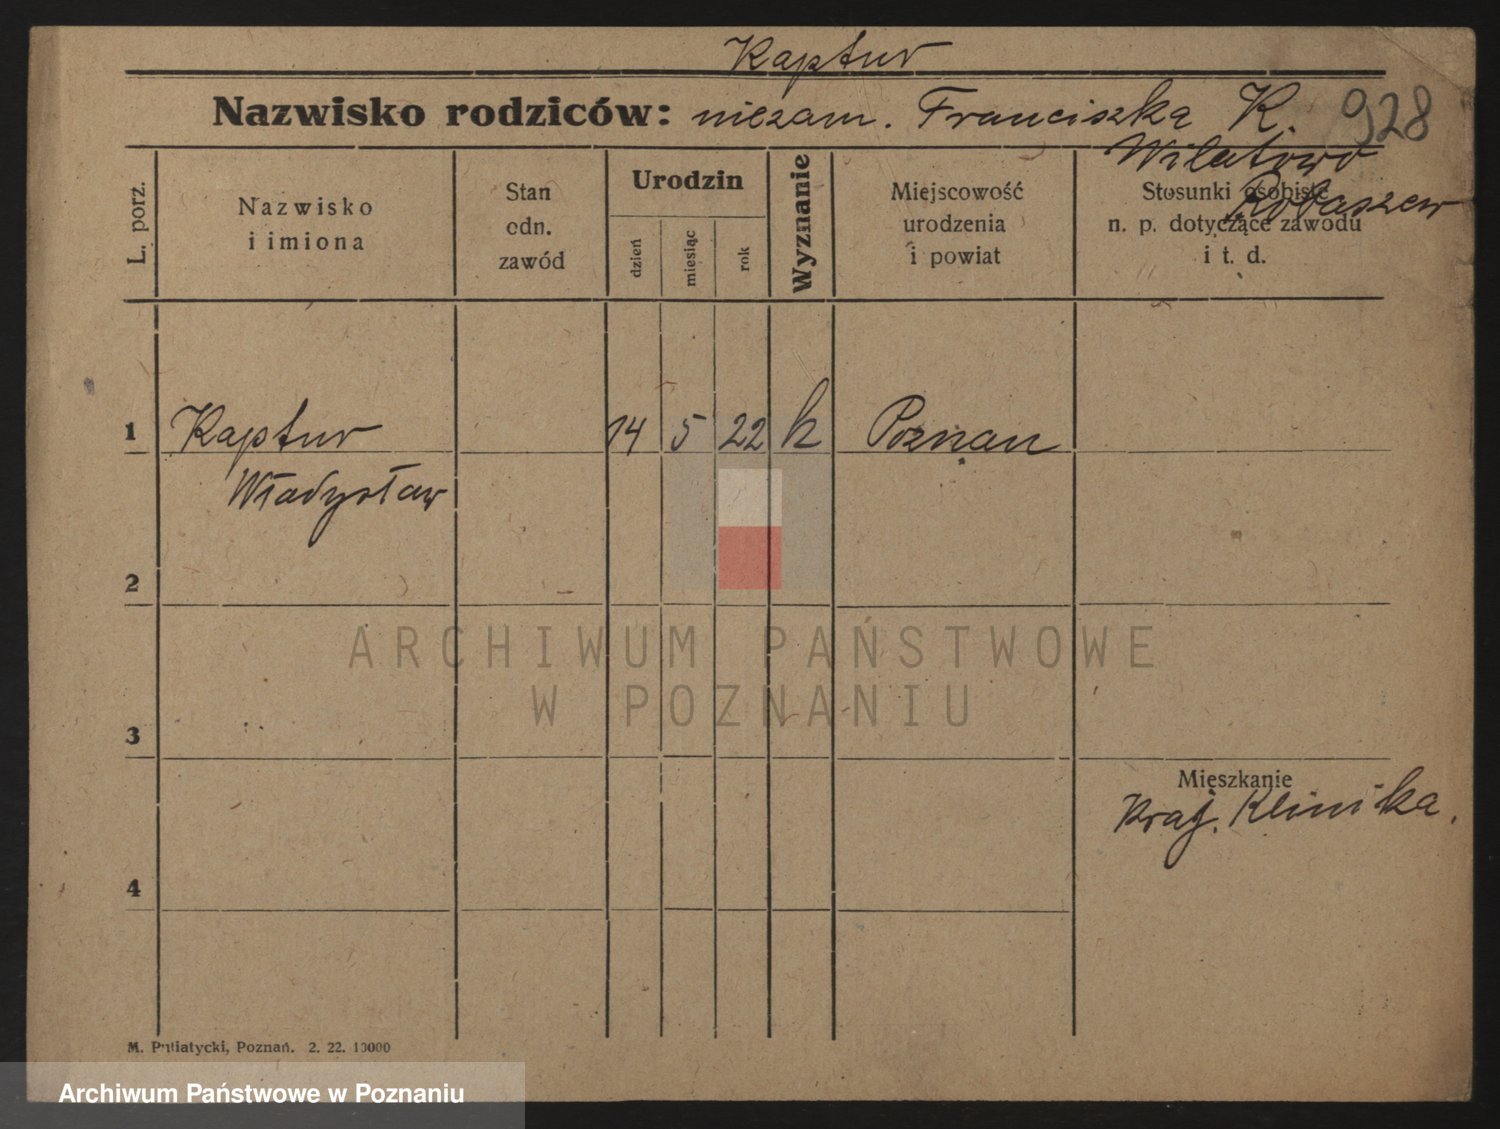 Kaptur
Nazwisko rodziców: niezam. Franciszka K. 928
Wilatowo
L. porz.
Nazwisko
i imiona
Stan
odn.
zawód
Urodzin
dzień
miesiąc
rok
Wyznanie
Miejscowość
urodzenia
i powiat
Stosunki osobiste
n. p. dotyczące zawodu
i t. d.
1 Kaptur 14 5 22 k Poznan
Władysław
2
3
4
Mieszkanie
Kraj. Klinika.
ARCHIWUM PAŃSTWOWE
W POZNANIU
M. Putiatycki, Poznań. 2. 22. 10000
Archiwum Państwowe w Poznaniu